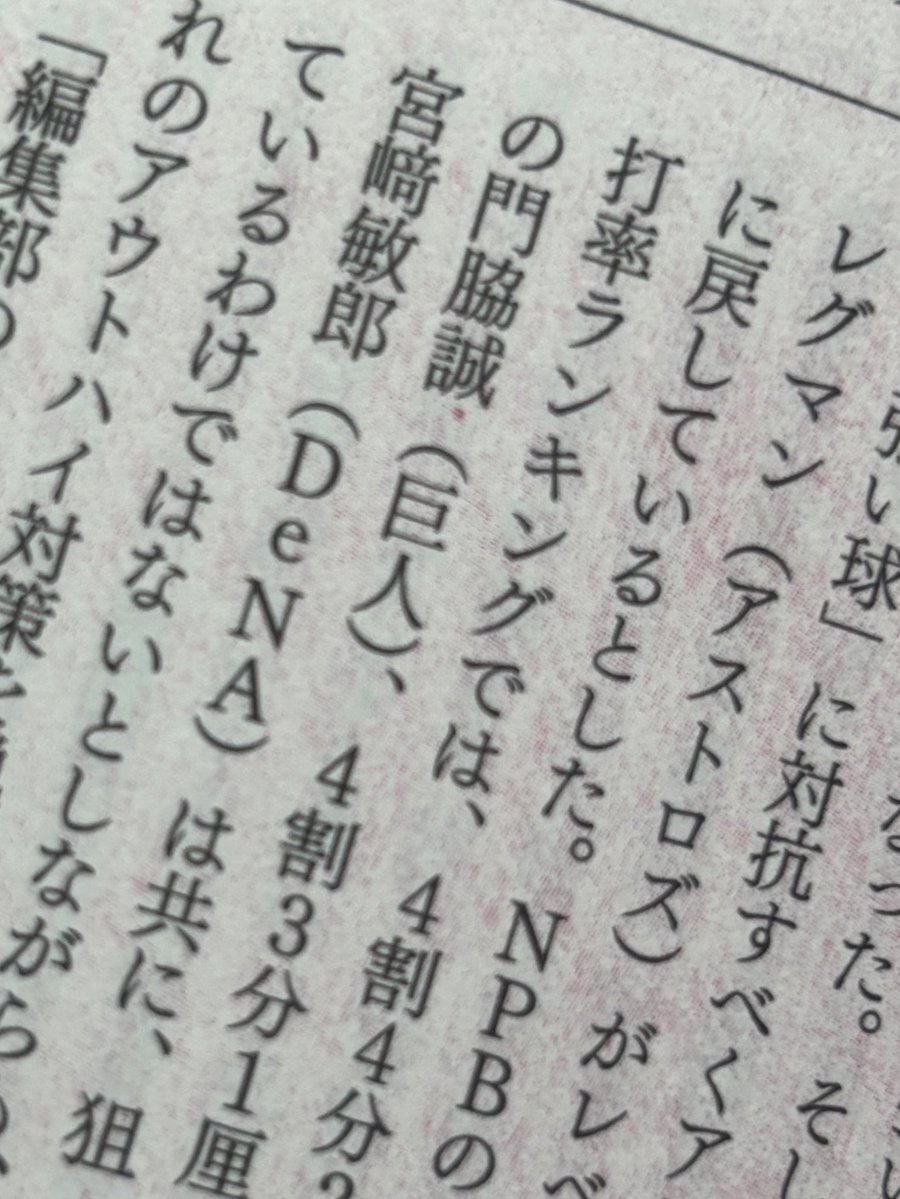 強い球」に対抗すべくア
レグマン（アストロズ）がレベ
に戻しているとした。NPBの
打率ランキングでは、4割4分
の門脇誠（巨人）、4割3分1厘
宮﨑敏郎（DeNA）は共に、狙
ているわけではないとしながら
れのアウトハイ対策
「編集部の